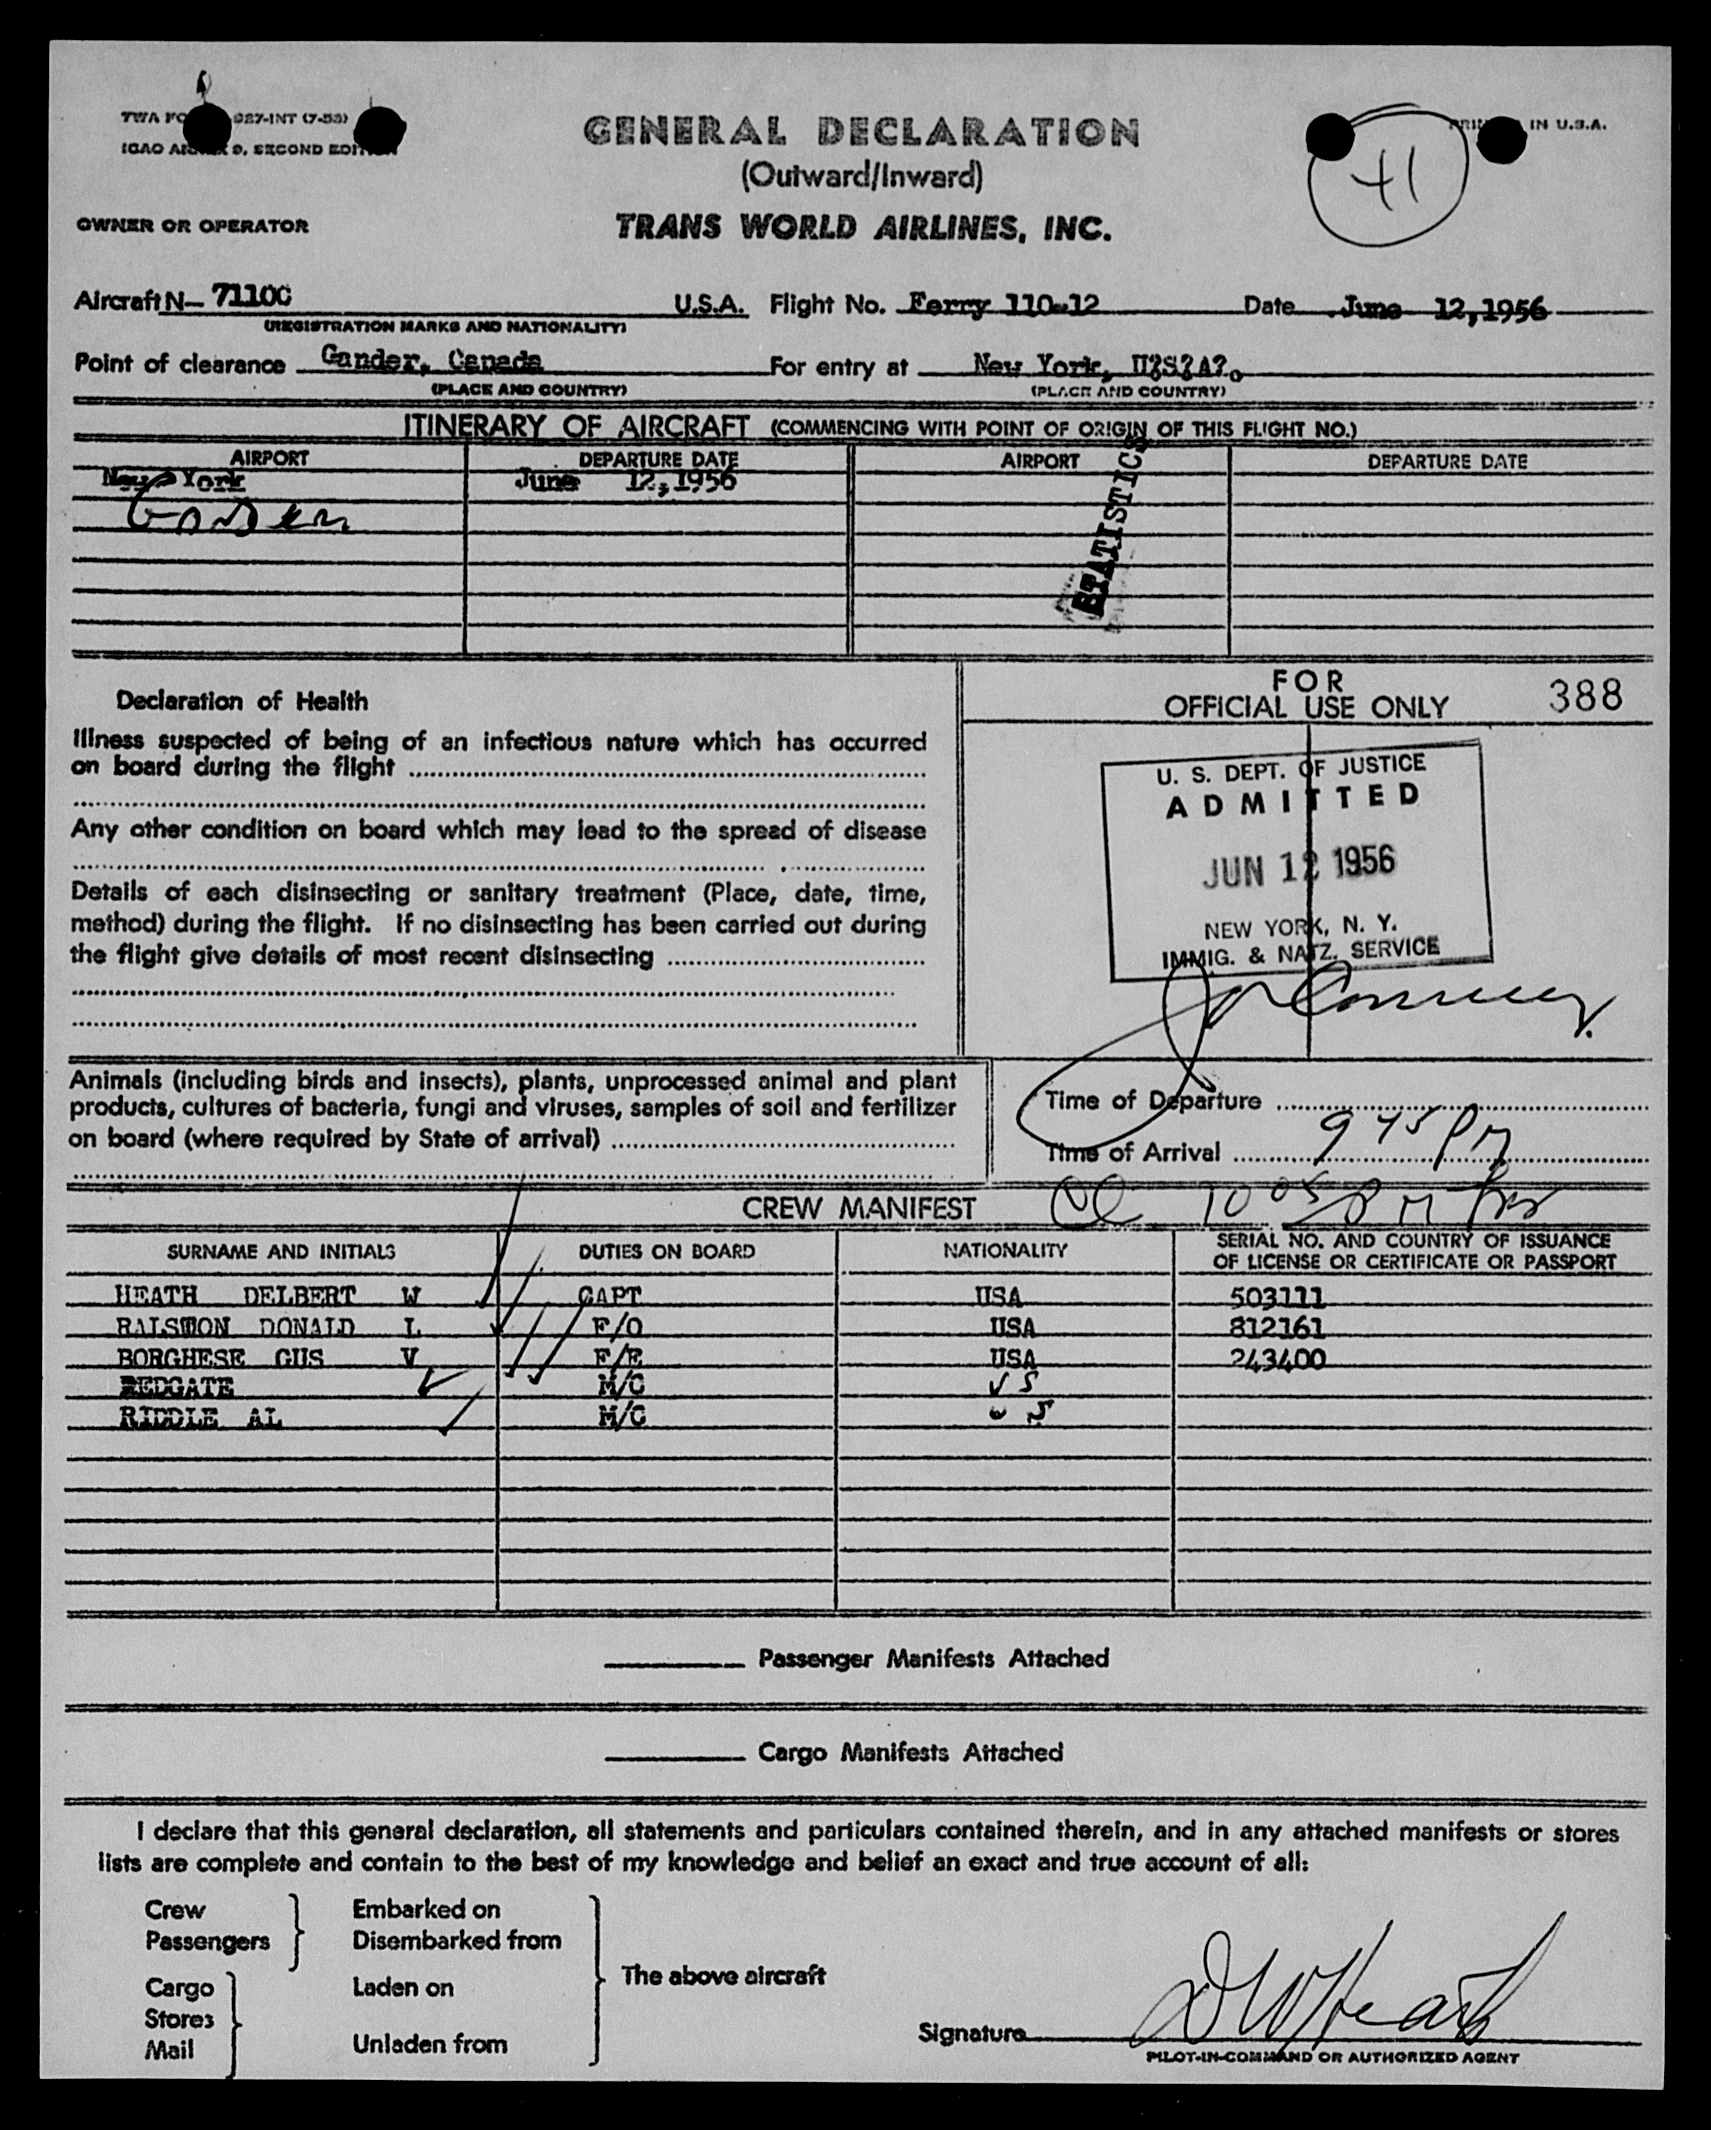 GENERAL DECLARATION
(Outward/Inward)
TRANS WORLD AIRLINES, INC.
IN U.S.A.
41
OWNER OR OPERATOR
Aircraft N- 7110C U.S.A. Flight No. Ferry 110-12 Date June 12, 1956
(REGISTRATION MARKS AND NATIONALITY)
Point of clearance Gander, Canada For entry at New York, U?S?A?.
(PLACE AND COUNTRY) (PLACE AND COUNTRY)
ITINERARY OF AIRCRAFT (COMMENCING WITH POINT OF ORIGIN OF THIS FLIGHT NO.)
AIRPORT DEPARTURE DATE AIRPORT DEPARTURE DATE
New York June 12, 1956
Gander
STATISTICS
Declaration of Health
Illness suspected of being of an infectious nature which has occurred
on board during the flight
Any other condition on board which may lead to the spread of disease
Details of each disinsecting or sanitary treatment (Place, date, time,
method) during the flight. If no disinsecting has been carried out during
the flight give details of most recent disinsecting
FOR
OFFICIAL USE ONLY 388
U. S. DEPT. OF JUSTICE
ADMITTED
JUN 12 1956
NEW YORK, N. Y.
IMMIG. & NATZ. SERVICE
Animals (including birds and insects), plants, unprocessed animal and plant
products, cultures of bacteria, fungi and viruses, samples of soil and fertilizer
on board (where required by State of arrival)
Time of Departure
Time of Arrival 9 45 PM
10 05 PM
CREW MANIFEST
SURNAME AND INITIALS DUTIES ON BOARD NATIONALITY SERIAL NO. AND COUNTRY OF ISSUANCE
OF LICENSE OR CERTIFICATE OR PASSPORT
HEATH DELBERT W CAPT USA 503111
RALSTON DONALD L F/O USA 812161
BORGHESE GUS V F/E USA 243400
REDGATE M/C US
RIDDLE AL M/C US
Passenger Manifests Attached
Cargo Manifests Attached
I declare that this general declaration, all statements and particulars contained therein, and in any attached manifests or stores
lists are complete and contain to the best of my knowledge and belief an exact and true account of all:
Crew Embarked on
Passengers Disembarked from
The above aircraft
Cargo Laden on
Stores
Mail Unladen from
Signature DW Heath
PILOT-IN-COMMAND OR AUTHORIZED AGENT